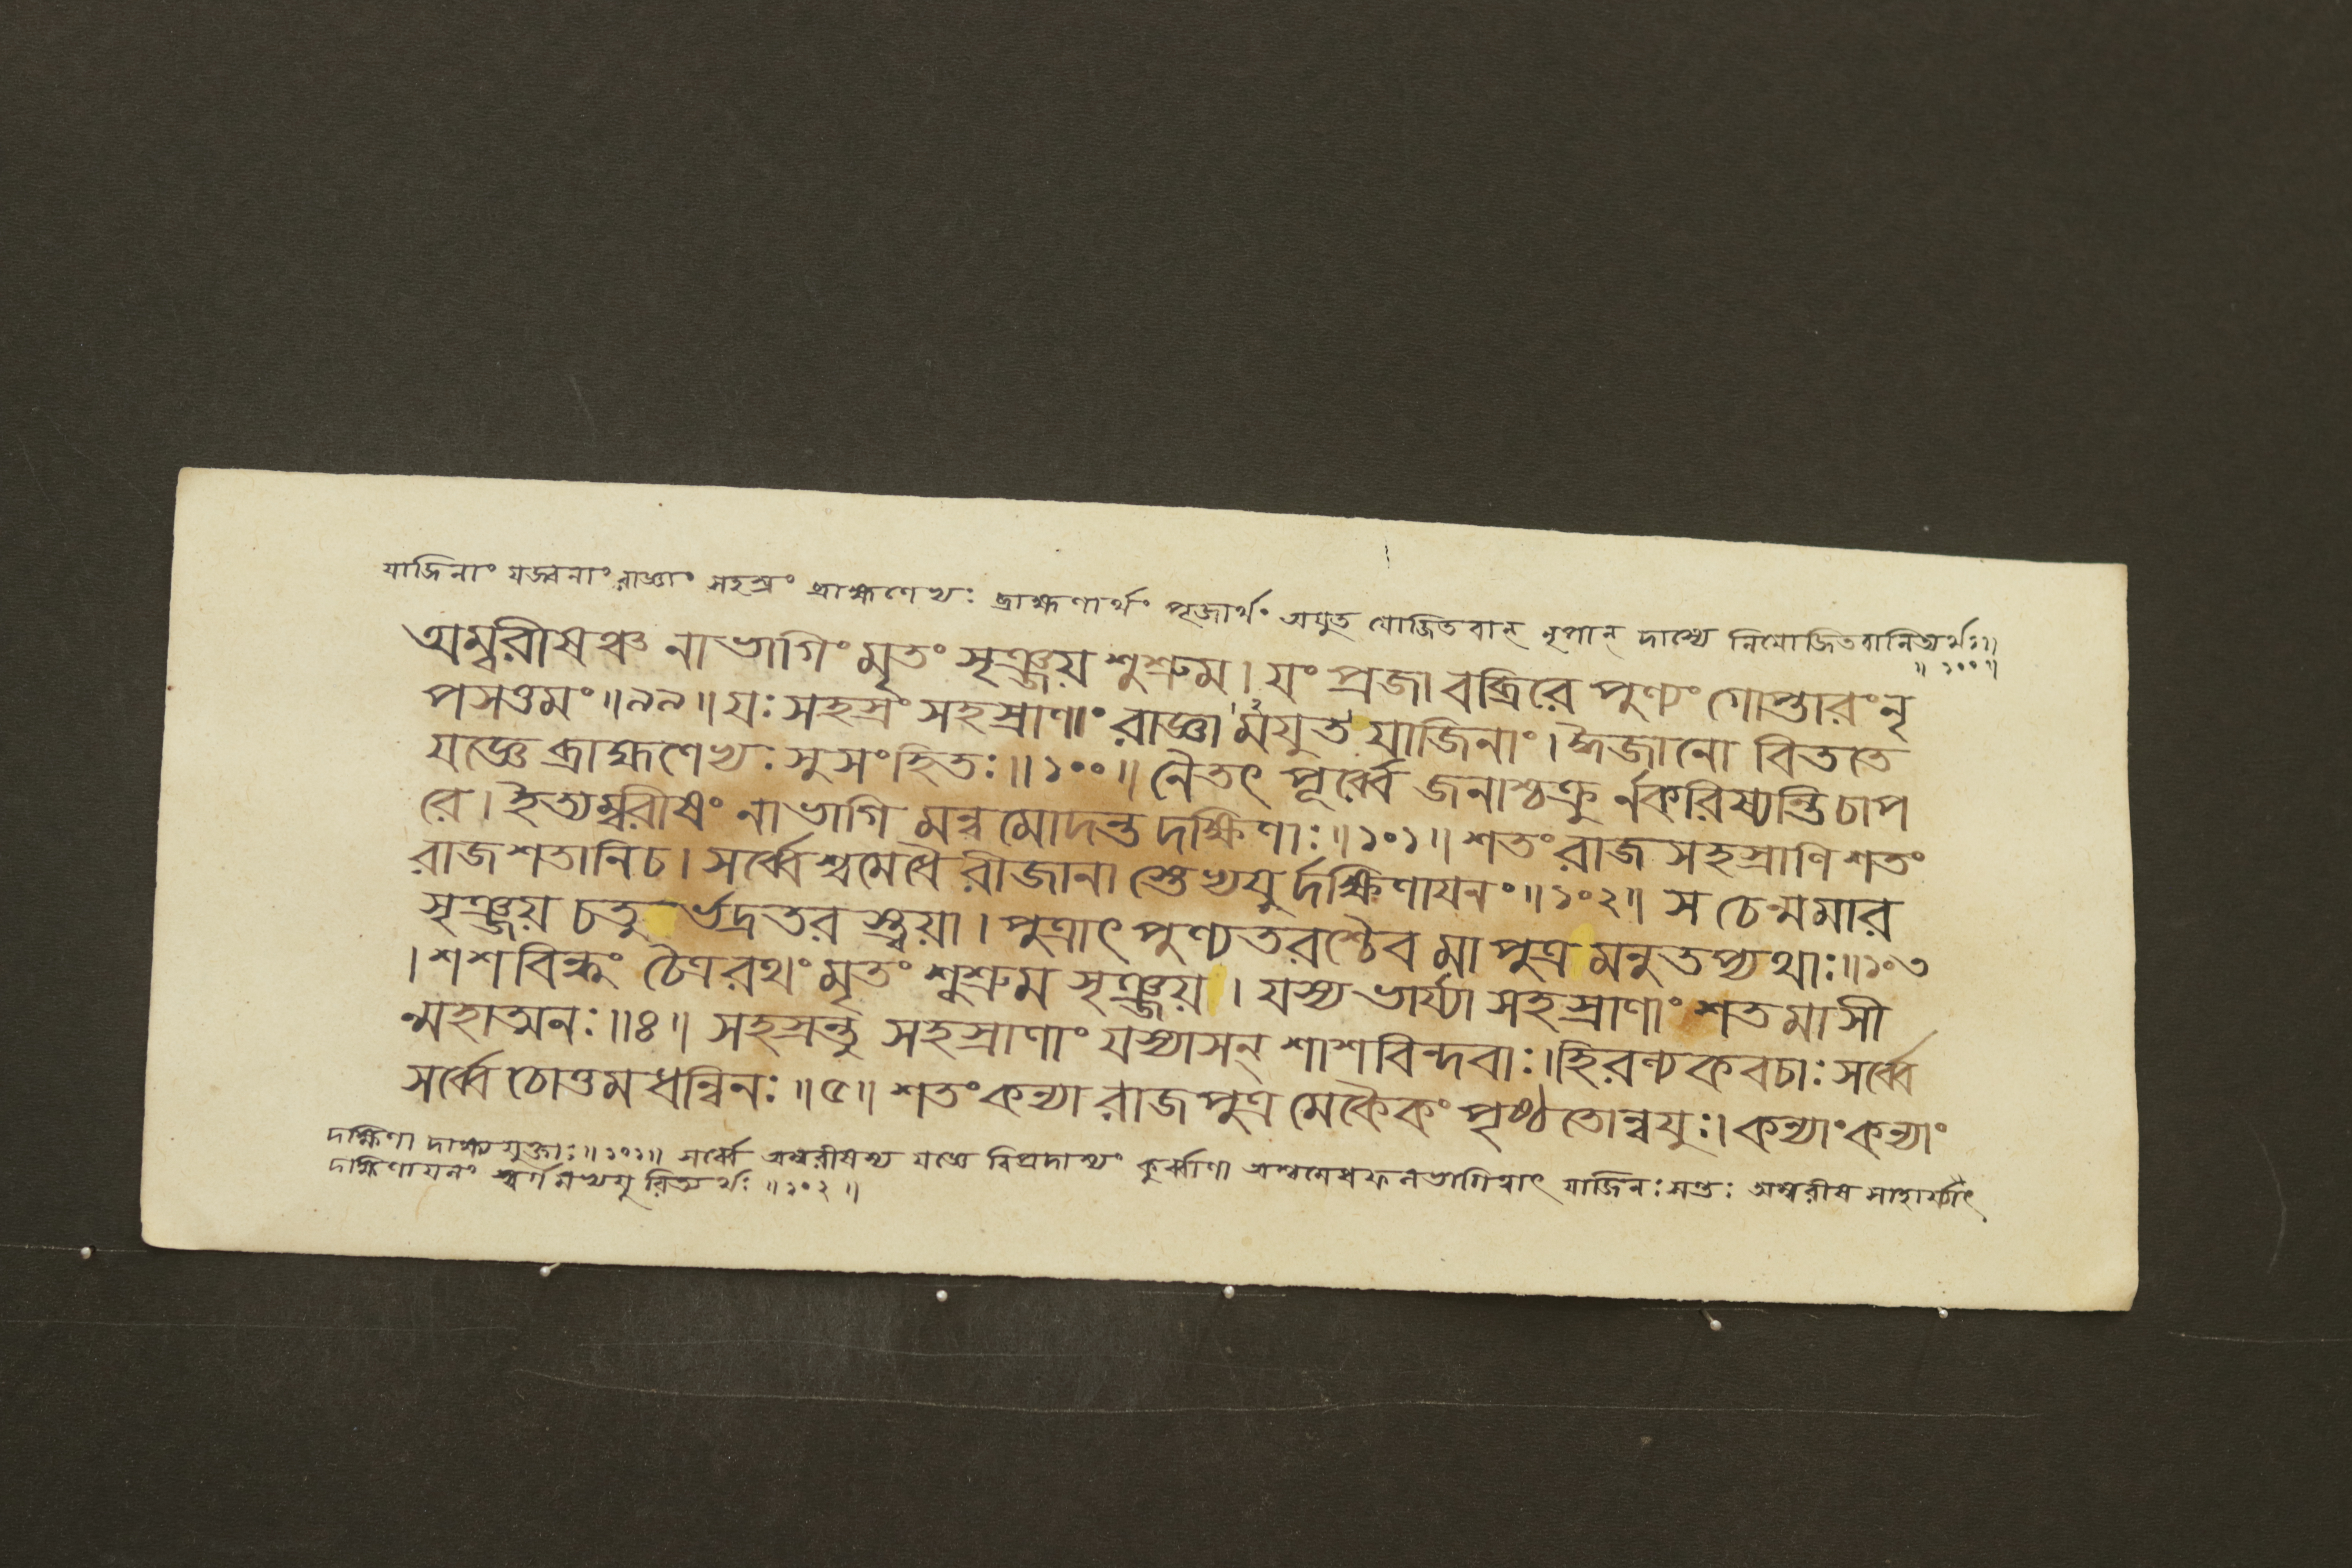 যাজিনাং যজ্বনাং রাজ্ঞাং সহস্রং ব্রাহ্মণেভ্যঃ ব্রাহ্মণার্থং পূজার্থং অযুত যোজিতবান্ নৃপান্ দাস্যে নিযোজিতবানিত্যর্থঃ॥
॥১০০॥
অম্বরীষঞ্চ নাভাগিং মৃতং সৃঞ্জয় শুশ্রুম। যং প্রজা বব্রিরে পুণ্যং গোপ্তারং নৃ
পসত্তমং॥৯৯॥ যঃ সহস্রং সহস্রাণাং রাজ্ঞামযুত যাজিনাং। ঈজানো বিততে
যজ্ঞে ব্রাহ্মণেভ্যঃ সুসংহিতঃ॥১০০॥ নৈতৎ পূর্ব্বে জনাশ্চক্রুর্নকরিষ্যন্তি চাপ
রে। ইত্যম্বরীষং নাভাগি মন্বমোদন্ত দক্ষিণাঃ॥১০১॥ শতং রাজ সহস্রাণি শতং
রাজশতানি চ। সর্ব্বেশ্বমেধৈ রীজানা স্তেভ্যযু র্দক্ষিণাযনং॥১০২॥ স চেন্মমার
সৃঞ্জয় চতুর্ভদ্রতর স্ত্বয়া। পুত্রাৎ পুণ্যতরশ্চৈব মা পুত্র মনুতপ্যথাঃ॥১০৩
। শশবিন্দুং চৈত্ররথং মৃতং শুশ্রুম সৃঞ্জয়। যস্য ভার্য্যা সহস্রাণাং শতমাসী
ন্মহাত্মনঃ॥৪॥ সহস্রন্তু সহস্রাণাং যস্যাসন্ শাশবিন্দবাঃ। হিরণ্যকবচাঃ সর্ব্বে
সর্ব্বে চোত্তমধন্বিনঃ॥৫॥ শতং কন্যা রাজপুত্র মেকৈকং পৃষ্ঠতোন্বযুঃ। কন্যাং কন্যাং
দক্ষিণা দাক্ষ্যযুক্তাঃ॥১০১॥ সর্ব্বে অম্বরীষস্য যজ্ঞে বিপ্রদাস্যং কুর্ব্বাণা অশ্বমেধফলভাগিত্বাৎ যাজিনঃ সন্তঃ অম্বরীষ মাহাত্ম্যাৎ
দক্ষিণাযনং স্বর্গ মভ্যযু রিত্যর্থঃ॥১০২॥